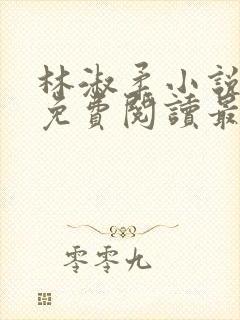 林淑柔小說
免費閱讀最
零零九